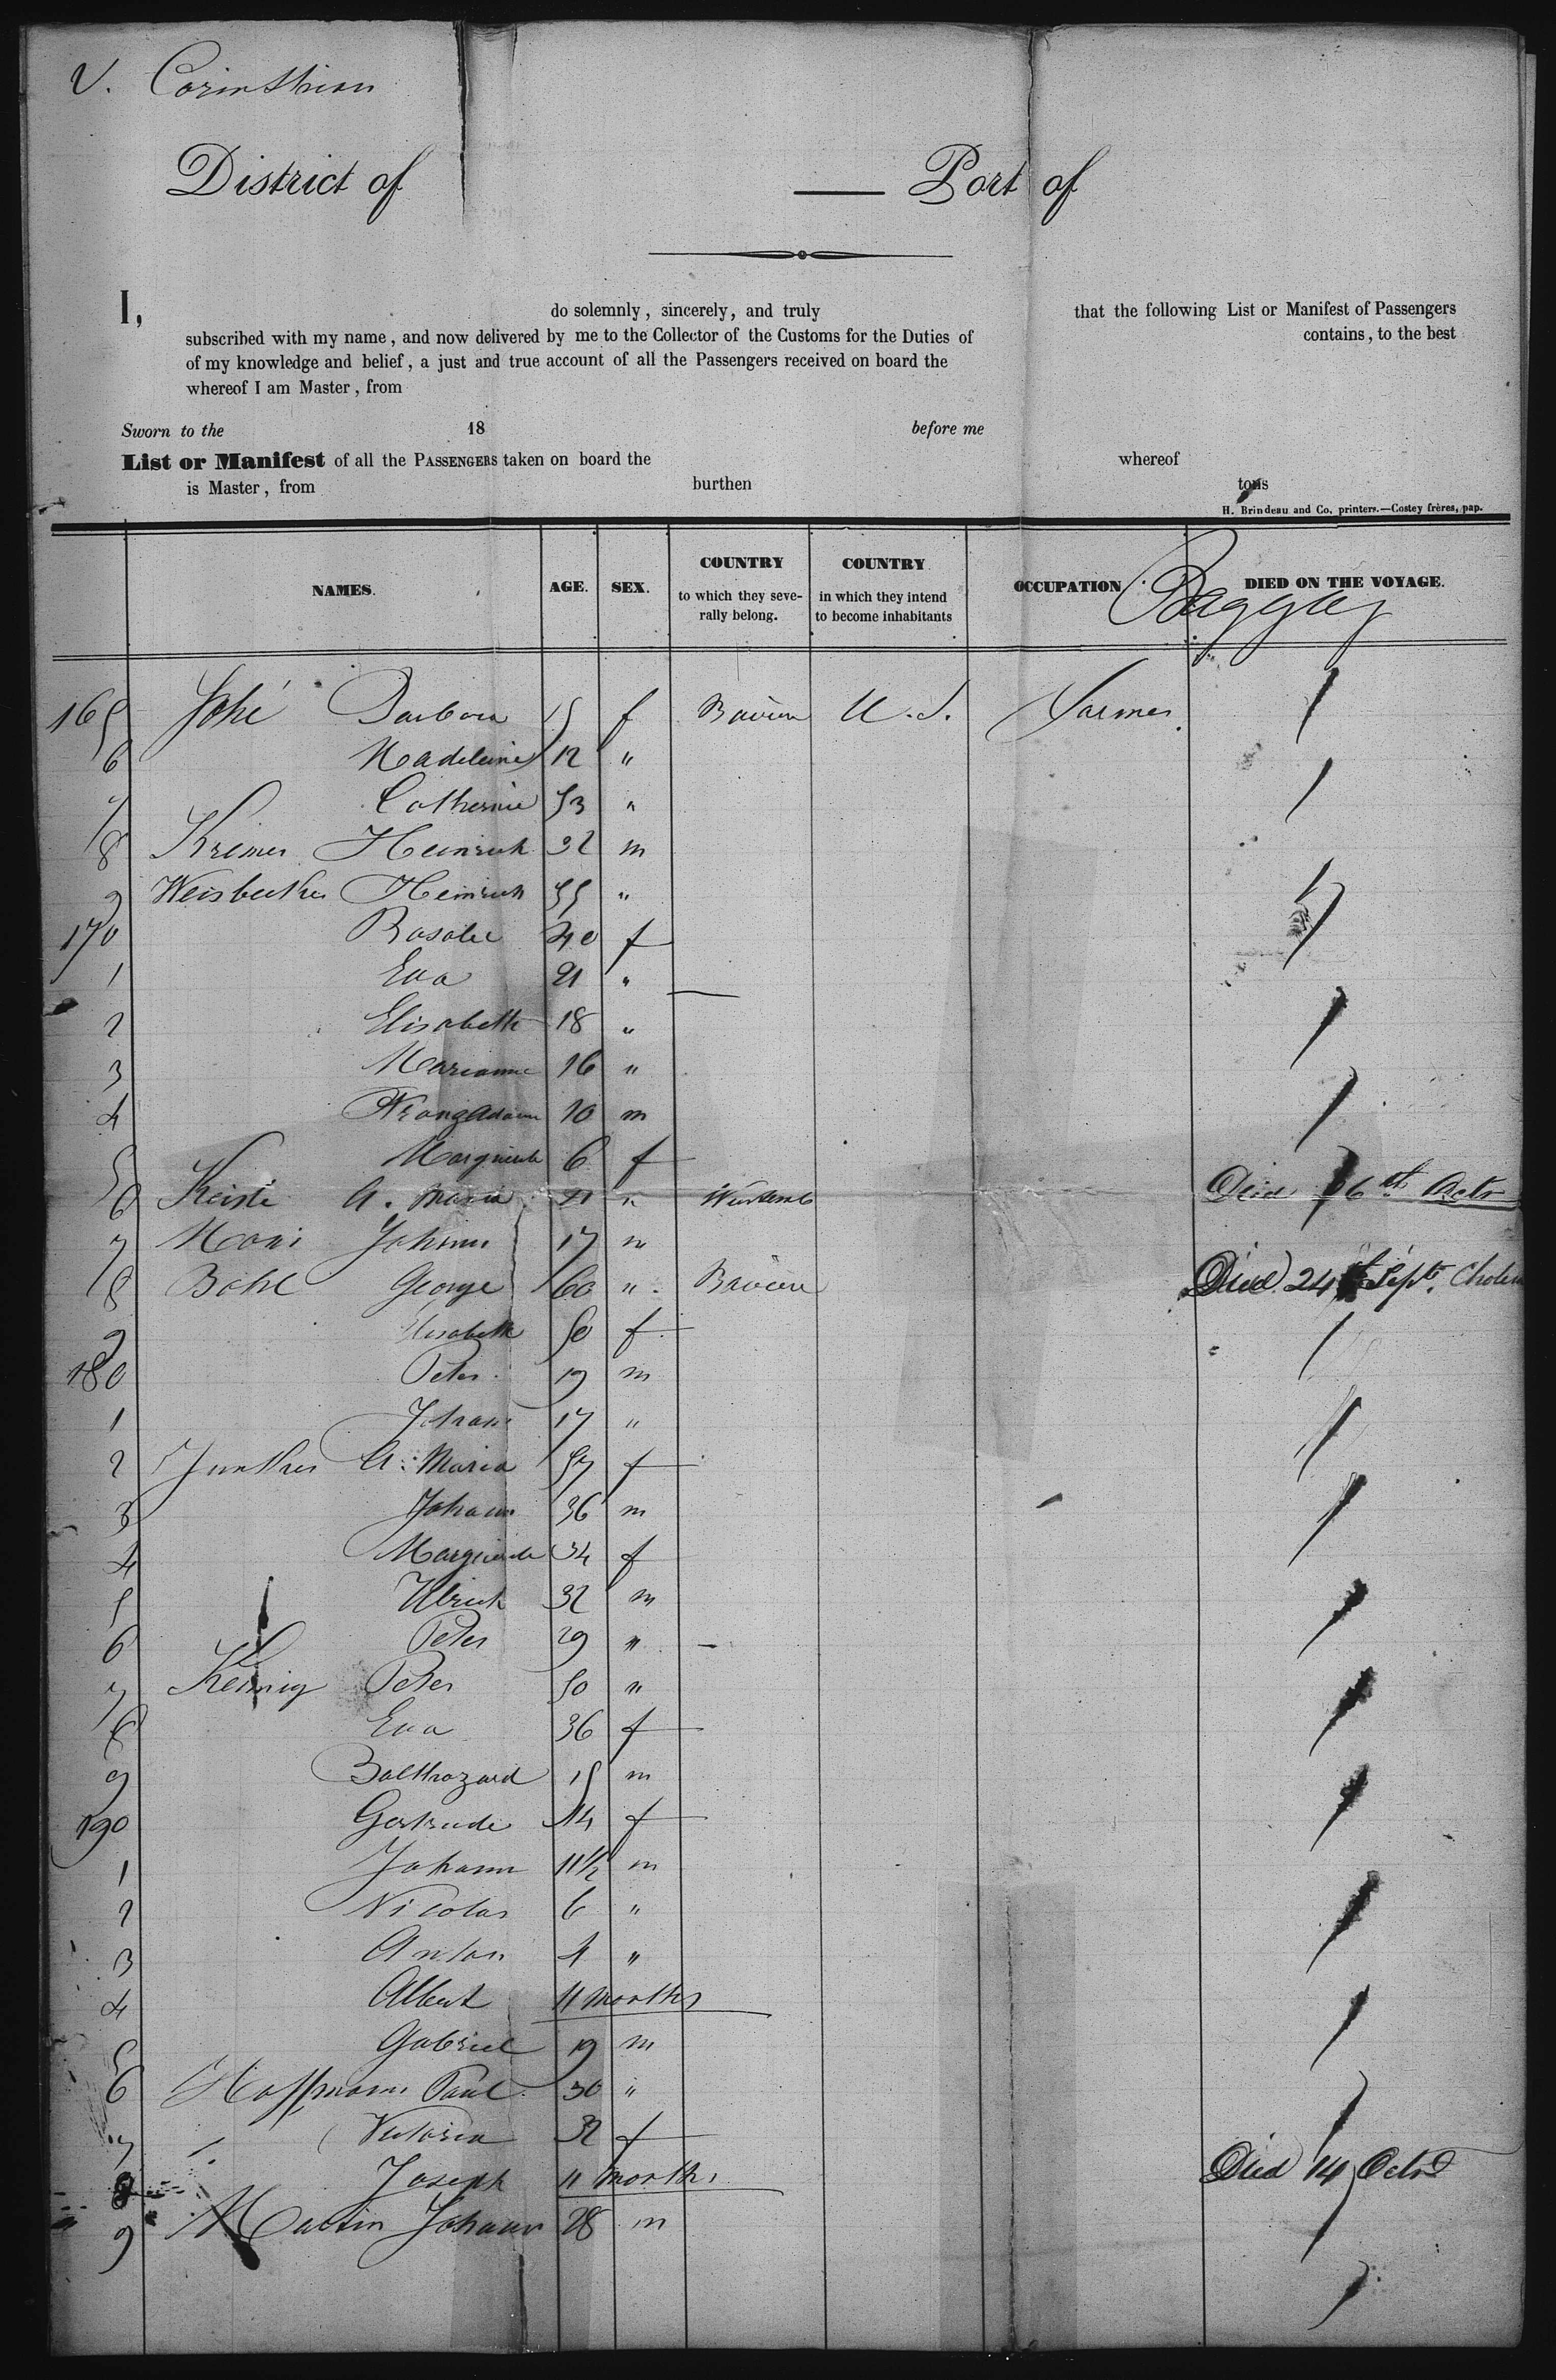 V. Corinthian
District of — Port of
I, do solemnly, sincerely, and truly that the following List or Manifest of Passengers
subscribed with my name, and now delivered by me to the Collector of the Customs for the Duties of contains, to the best
of my knowledge and belief, a just and true account of all the Passengers received on board the
whereof I am Master, from
Sworn to the 18 before me
List or Manifest of all the PASSENGERS taken on board the whereof
is Master, from burthen tons
H. Brindeau and Co, printers.—Costey frères, pap.
NAMES. AGE. SEX. COUNTRY to which they severally belong. COUNTRY in which they intend to become inhabitants OCCUPATION DIED ON THE VOYAGE.
165 Johé 15 f U. S. Farmer
6 Madeleine 12 "
7 Catherine 53 "
8 Kremer Heinrich 32 m
9 Heinrich 55 "
170 Rosalie 40 f
1 Eva 21 "
2 Elisabeth 18 "
3 Marianne 16 "
4 Franz Adam 10 m
5 6 f
6 A. Maria 21 " Died 6th Octr
7 Johann 17 m
8 Bohl George 60 " Died 24 Sept. Cholera
9 Elisabeth 50 f
180 Peter 19 m
1 Johann 17 "
2 Junker A. Maria 57 f
3 Johann 36 m
4 34 f
5 Ulrich 32 m
6 Peter 29 "
7 Peter 50 "
8 Eva 36 f
9 Balthazard 15 m
190 Gertrude 14 f
1 Johann 11 1/2 m
2 Nicolas 6 "
3 Anton 4 "
4 Albert 11 months
5 Gabriel 19 m
6 Hoffmann Paul 30 "
7 Victoria 32 f
8 Joseph 11 months Died 14 Octr
9 Martin Johann 28 m